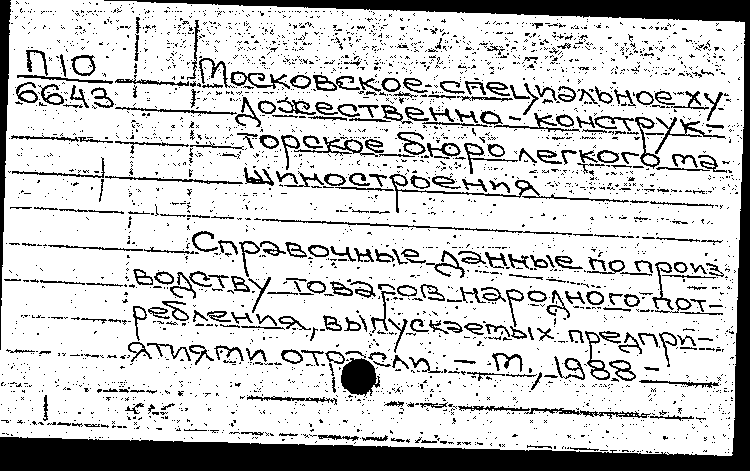 П10
6643
Московское специальное ху
дожественно-конструк-
торское бюро легкого ма-
шиностроения
Справочные данные по произ
водству товаров народного пот-
ребления, выпускаемых предпри-
ятиями отрасли – М., 1988 –